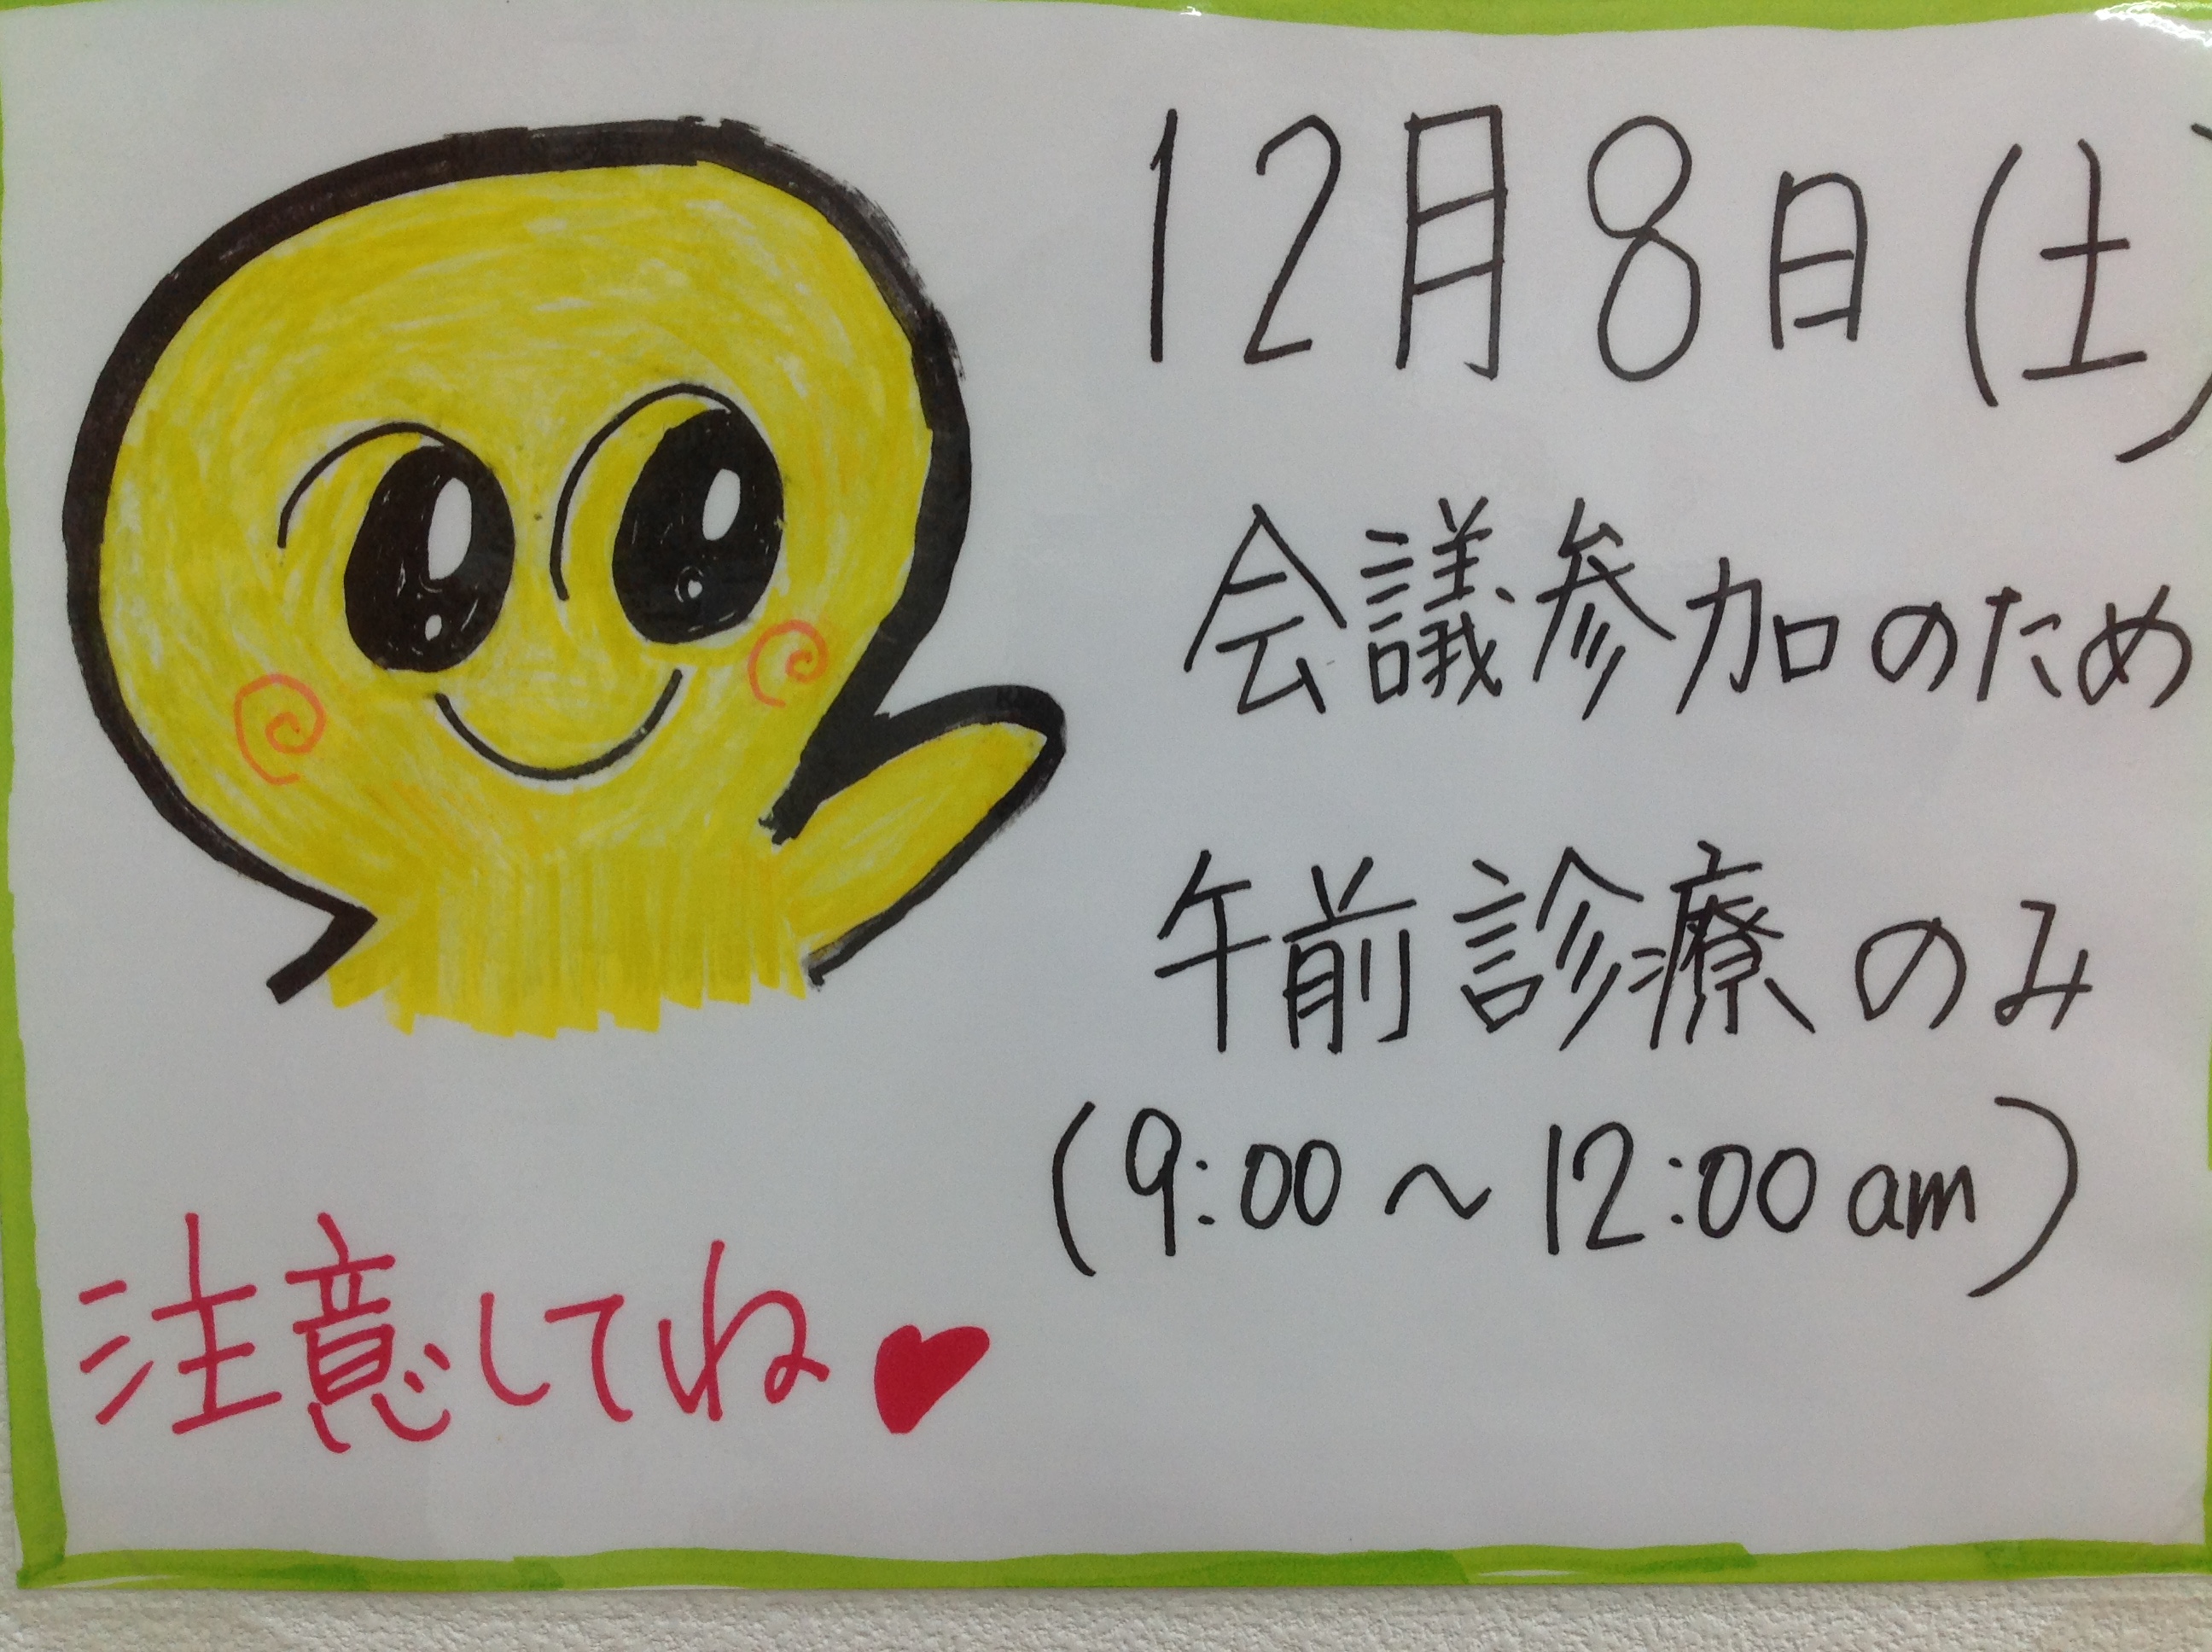 12月8日(土)
会議参加のため
午前診療のみ
(9:00～12:00am)
注意してね♥